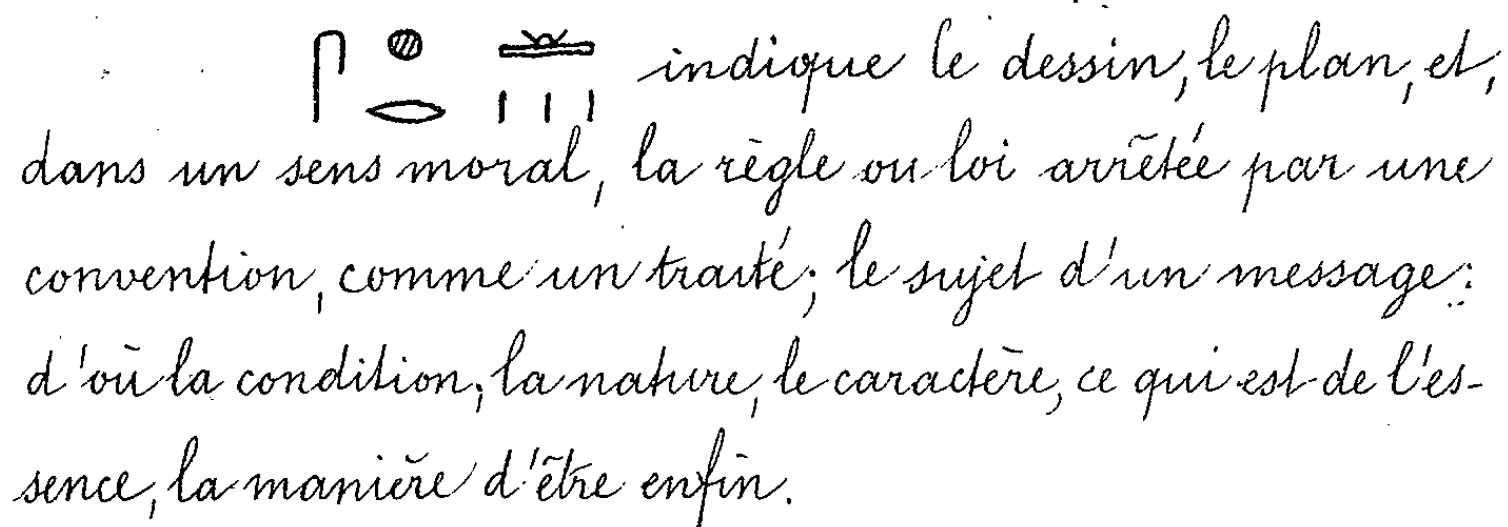 𓋴𓐍𓂋𓏛𓏥 indique le dessin, le plan, et,
dans un sens moral, la règle ou loi arrêtée par une
convention, comme un traité; le sujet d'un message:
d'où la condition; la nature, le caractère, ce qui est de l'es-
sence, la manière d'être enfin.